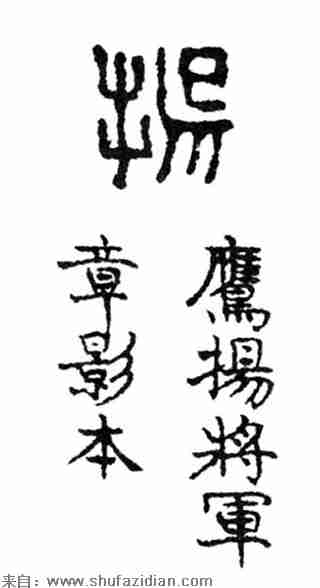 揚
鷹揚將軍
章影本
来自：www.shufazidian.com